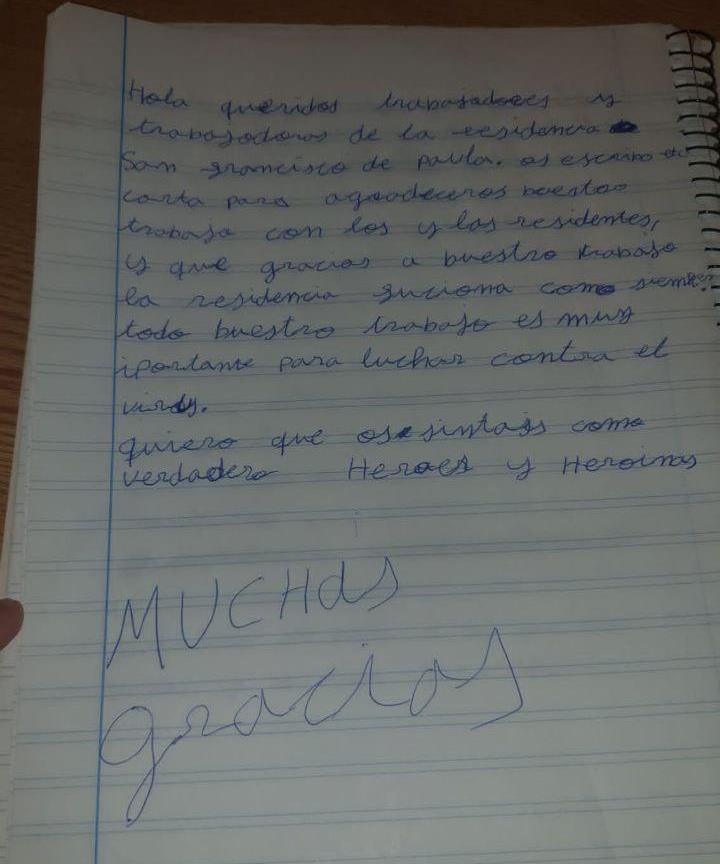 Hola queridos trabajadores y
trabajadoras de la residencia
San francisco de paula. os escribo
carta para agradeceros buestro
trabajo con los y las residentes,
y que gracias a buestro trabajo
la residencia funciona como siempre.
todo buestro trabajo es muy
iportante para luchar contra el
virus.
quiero que os sintais como
verdadero Heroes y Heroinas
MUCHas
gracias